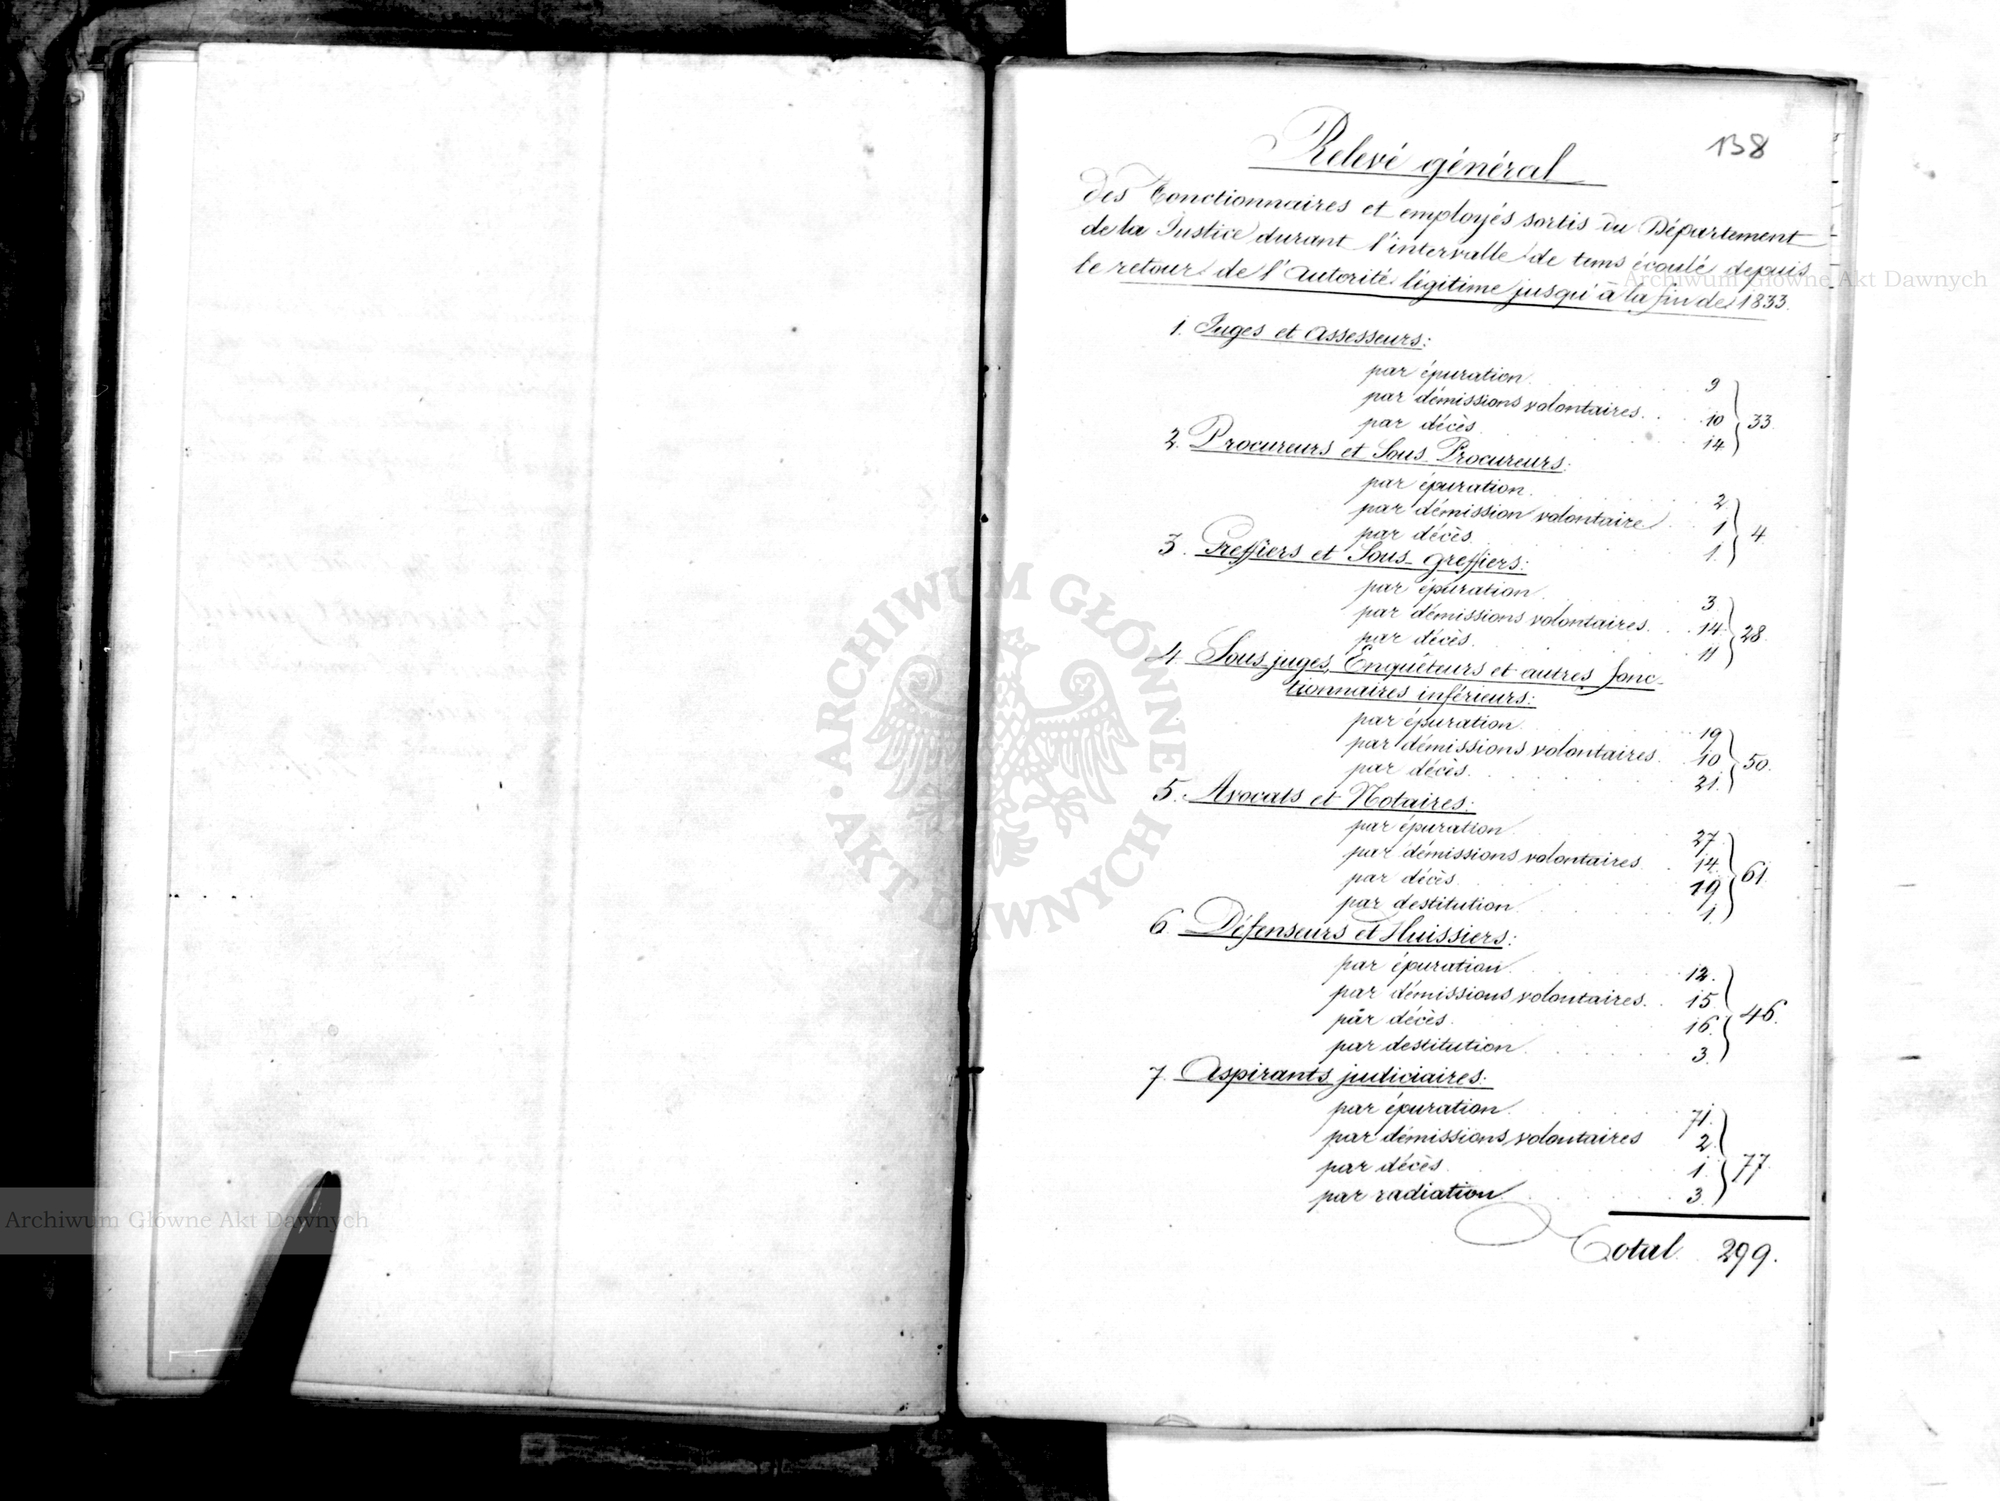 138
Relevé général
des Fonctionnaires et employés sortis du Département
de la Justice durant l'intervalle de tems écoulé depuis
le retour de l'autorité légitime jusqu'à la fin de 1833.
1. Juges et Assesseurs:
par épuration 9
par démissions volontaires 10 33
par décès 14
2. Procureurs et Sous-Procureurs:
par épuration 2
par démission volontaire 1 4
par décès 1
3. Greffiers et Sous-greffiers:
par épuration 3
par démissions volontaires 14 28
par décès 11
4. Sous-juges, Enquêteurs et autres fonc-
tionnaires inférieurs:
par épuration 19
par démissions volontaires 10 50
par décès 21
5. Avocats et Notaires:
par épuration 27
par démissions volontaires 14
par décès 19 61
par destitution 1
6. Défenseurs et Huissiers:
par épuration 12
par démissions volontaires 15
par décès 16 46
par destitution 3
7. Aspirants judiciaires:
par épuration 71
par démissions volontaires 2
par décès 1 77
par radiation 3
Total 299.
Archiwum Główne Akt Dawnych
ARCHIWUM GŁÓWNE
AKT DAWNYCH
Archiwum Główne Akt Dawnych